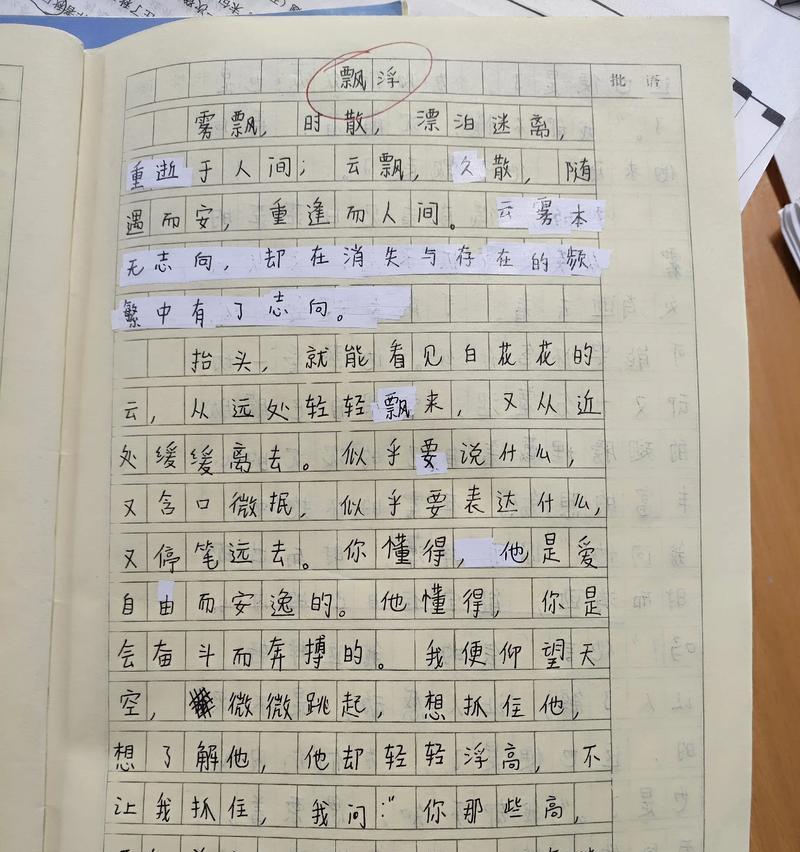 飘浮
批语
雾飘，时散，漂泊迷离，
重逝于人间；云飘，久散，随
遇而安，重逢而人间。云雾本
无志向，却在消失与存在的频
繁中有了志向。
抬头，就能看见白花花的
云，从远处轻轻飘来，又从近
处缓缓离去。似乎要说什么，
又含口微抿，似乎要表达什么，
又停笔远去。你懂得，他是爱
自由而安逸的。他懂得，你是
会奋斗而奔搏的。我便仰望天
空，微微跳起，想抓住他，
想了解他，他却轻轻浮高，不
让我抓住，我问："你那些高，